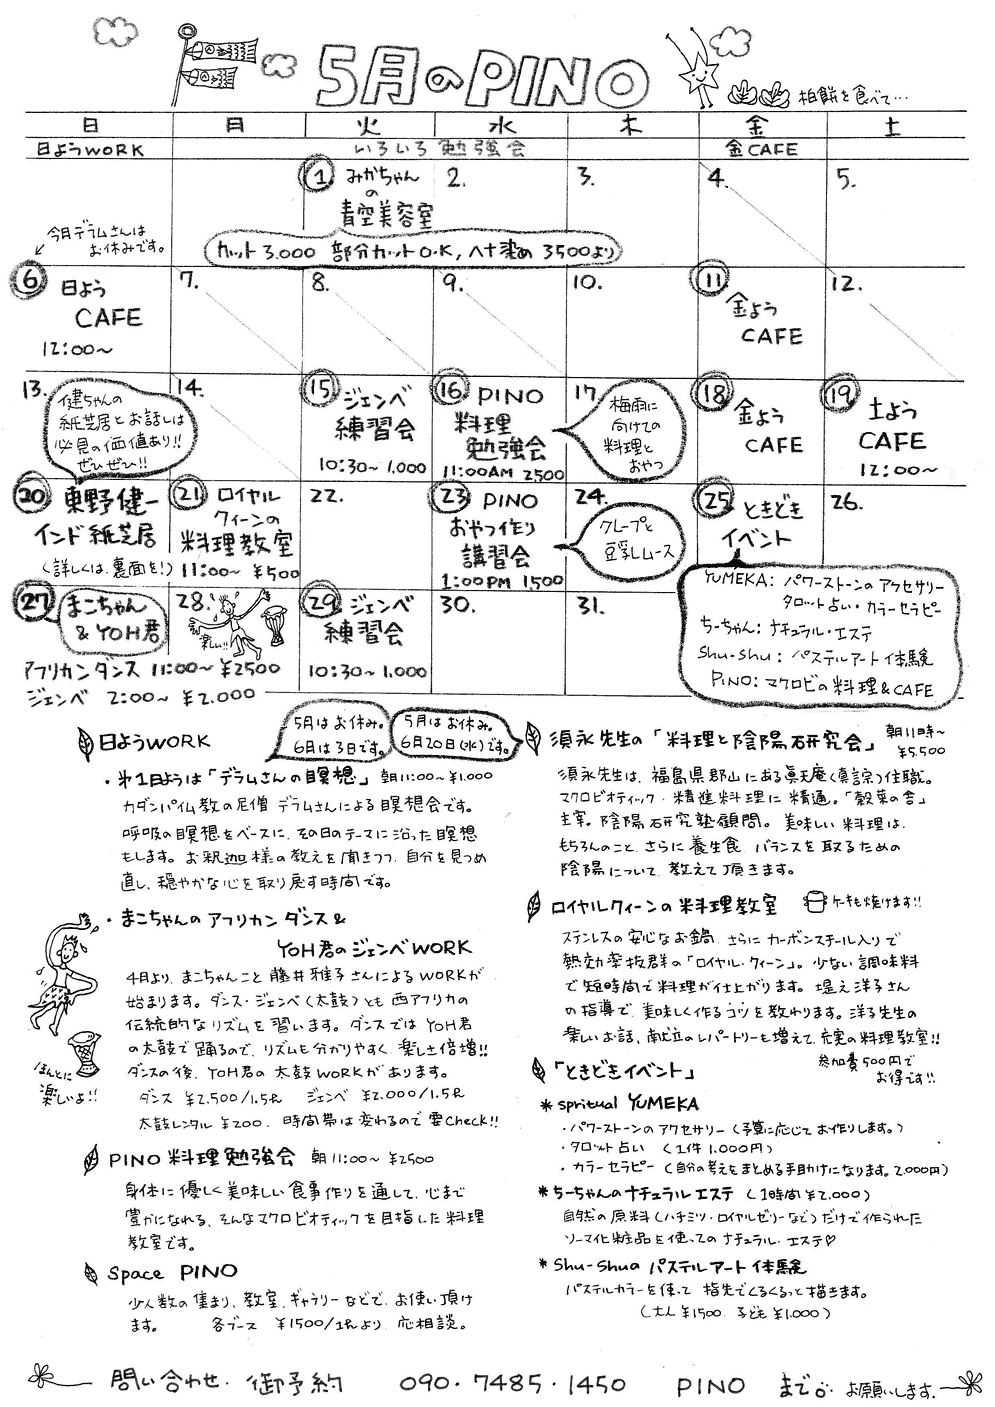 5月のPINO
柏餅を食べて…
日 月 火 水 木 金 土
日ようWORK いろいろ勉強会 金CAFE
1 みかちゃんの青空美容室
2.
3.
4.
5.
カット3.000 部分カットO.K, ヘナ染め 3500より
今月デラムさんは
お休みです。
6 日よう
CAFE
12:00〜
7.
8.
9.
10.
11 金よう
CAFE
12.
13.
健ちゃんの
紙芝居とお話しは
必見の価値あり!!
ぜひぜひ!!
14.
15 ジェンベ
練習会
10:30〜 1.000
16 PINO
料理
勉強会
11:00AM 2500
17.
梅雨に
向けての
料理と
おやつ
18 金よう
CAFE
19 土よう
CAFE
12:00〜
20 東野健一
インド紙芝居
(詳しくは、裏面を!)
21 ロイヤル
クィーンの
料理教室
11:00〜 ¥500
22.
23 PINO
おやつ作り
講習会
1:00PM 1,500
24.
クレープと
豆乳ムース
25 ときどき
イベント
26.
YUMEKA: パワーストーンのアクセサリー
タロット占い・カラーセラピー
ちーちゃん: ナチュラル・エステ
Shu-Shu: パステルアート体験
PINO: マクロビの料理&CAFE
27 まこちゃん
& YOH君
アフリカンダンス 11:00〜 ¥2500
ジェンベ 2:00〜 ¥2.000
28.
楽しい!!
29 ジェンベ
練習会
10:30〜 1.000
30.
31.
日ようWORK
5月はお休み。
6月は3日です。
・第1日ようは「デラムさんの瞑想」 朝11:00〜¥1.000
カダンパ仏教の尼僧 デラムさんによる瞑想会です。
呼吸の瞑想をベースに、その日のテーマに沿った瞑想
もします。お釈迦様の教えを聞きつつ、自分を見つめ
直し、穏やかな心を取り戻す時間です。
・まこちゃんの アフリカン ダンス &
YOH君のジェンベWORK
4月より、まこちゃんこと 藤井雅子さんによるWORKが
始まります。ダンス・ジェンベ(太鼓)とも西アフリカの
伝統的なリズムを習います。ダンスでは YOH君
の太鼓で踊るので、リズムも分かりやすく、楽しさ倍増!!
ダンスの後、YOH君の太鼓WORKがあります。
ダンス ¥2.500/1.5h ジェンベ ¥2.000/1.5h
太鼓レンタル ¥200. 時間帯は変わるので要Check!!
ほんとに
楽しいよ!!
PINO 料理勉強会 朝11:00〜 ¥2500
身体に優しく美味しい食事作りを通して、心まで
豊かになれる、そんなマクロビオティックを目指した料理
教室です。
Space PINO
少人数の集まり、教室、ギャラリーなどで、お使い頂け
ます。 各ブース ¥1500/1hより 応相談。
5月はお休み。
6月20日(水)です。
須永先生の「料理と陰陽研究会」 朝11時〜
¥5,500
須永先生は、福島県郡山にある真天庵(真言宗)住職。
マクロビオティック・精進料理に精通。「穀菜の舎」
主宰。陰陽研究塾顧問。美味しい料理は、
もちろんのこと、さらに養生食、バランスを取るための
陰陽について、教えて頂きます。
ロイヤルクィーンの料理教室 ケーキも焼けます!!
ステンレスの安心なお鍋、さらにカーボンスチール入りで
熱効率抜群の「ロイヤル・クィーン」。少ない調味料
で短時間で料理が仕上がります。堤え洋子さん
の指導で、美味しく作るコツを教わります。洋子先生の
楽しいお話、献立のレパートリーも増えて、充実の料理教室!!
参加費500円で
お得です!!
「ときどきイベント」
* spritual YUMEKA
・パワーストーンのアクセサリー(予算に応じてお作りします。)
・タロット占い (1件 1.000円)
・カラーセラピー (自分の考えをまとめる手助けになります。2.000円)
*ちーちゃんのナチュラルエステ (1時間¥2.000)
自然の原料(ハチミツ・ロイヤルゼリーなど)だけで作られた
ソーマ化粧品を使ってのナチュラル・エステ♡
* Shu-Shuの パステルアート体験
パステルカラーを使って 指先でくるくるっと描きます。
(大人¥1500. 子ども¥1.000)
問い合わせ・御予約 090・7485・1450 PINO まで。お願いします。